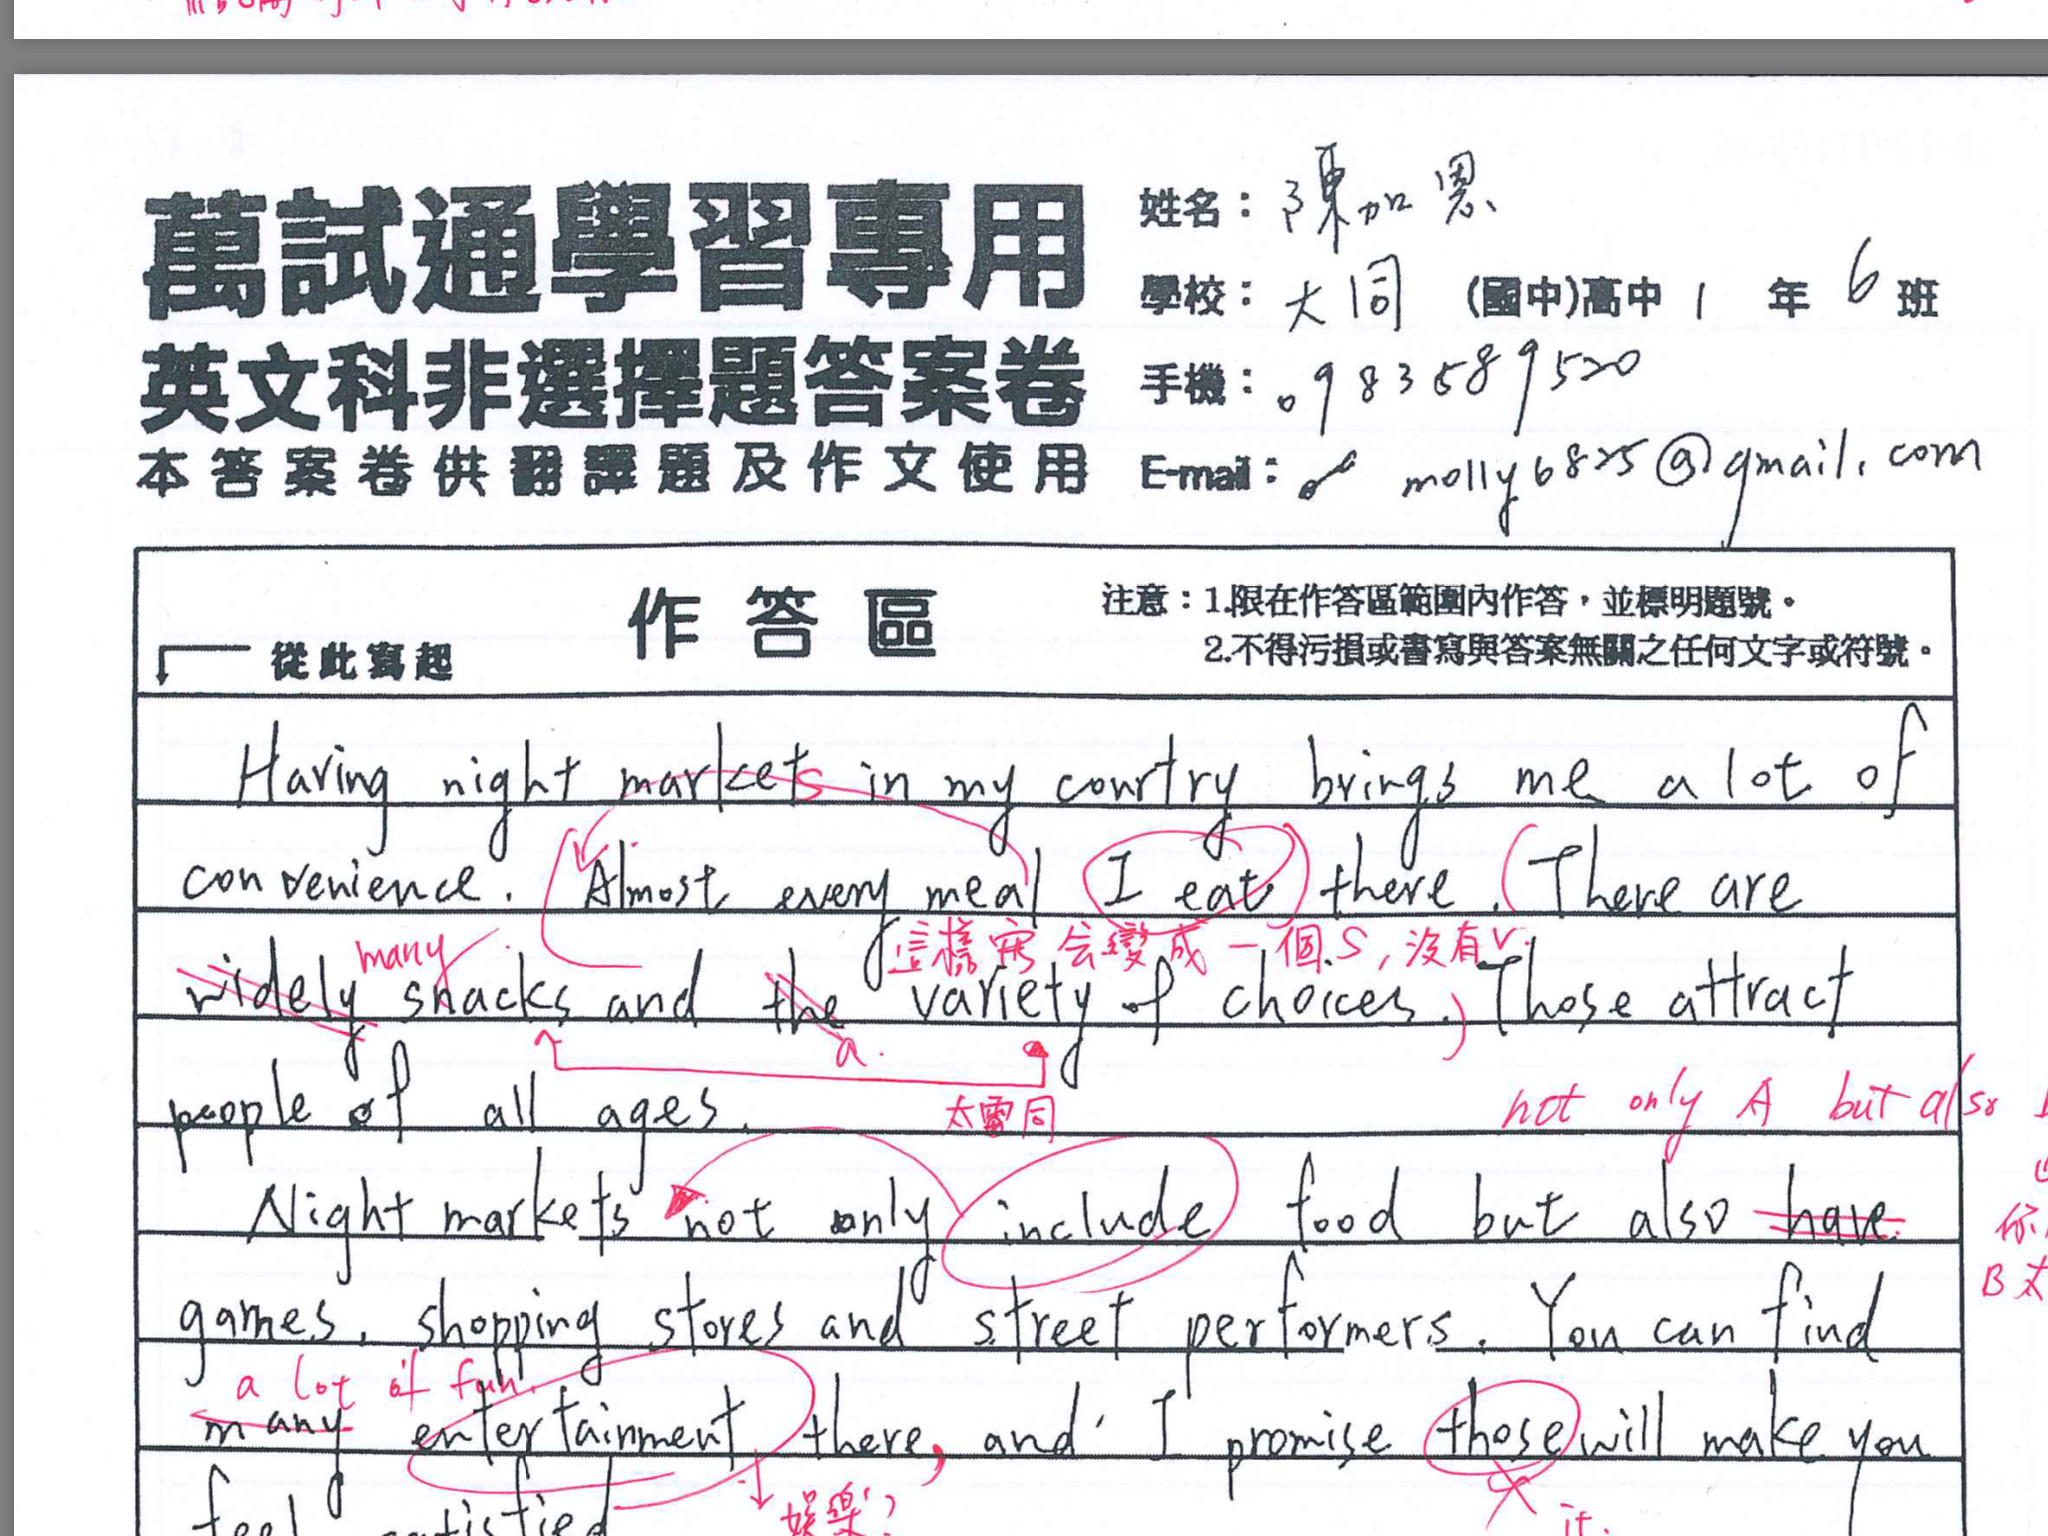 萬試通學習專用
英文科非選擇題答案卷
本答案卷供翻譯題及作文使用
姓名：陳加恩
學校：大同 (國中)高中 1 年 6 班
手機：0983589520
E-mail： molly6825@gmail.com
作答區
從此寫起
注意：1.限在作答區範圍內作答，並標明題號。
2.不得污損或書寫與答案無關之任何文字或符號。
Having night markets in my courtry brings me a lot of
convenience. Almost every meal I eat there. There are
這樣寫会變成一個S,沒有V.
many
widely snacks and the variety of choices. Those attract
a.
people of all ages.
太雷同
not only A but also
Night markets not only include food but also have
B太
games, shopping stores and street performers. You can find
a lot of fun.
many entertainment there, and I promise those will make you
娛樂?
it.
feel satisfied